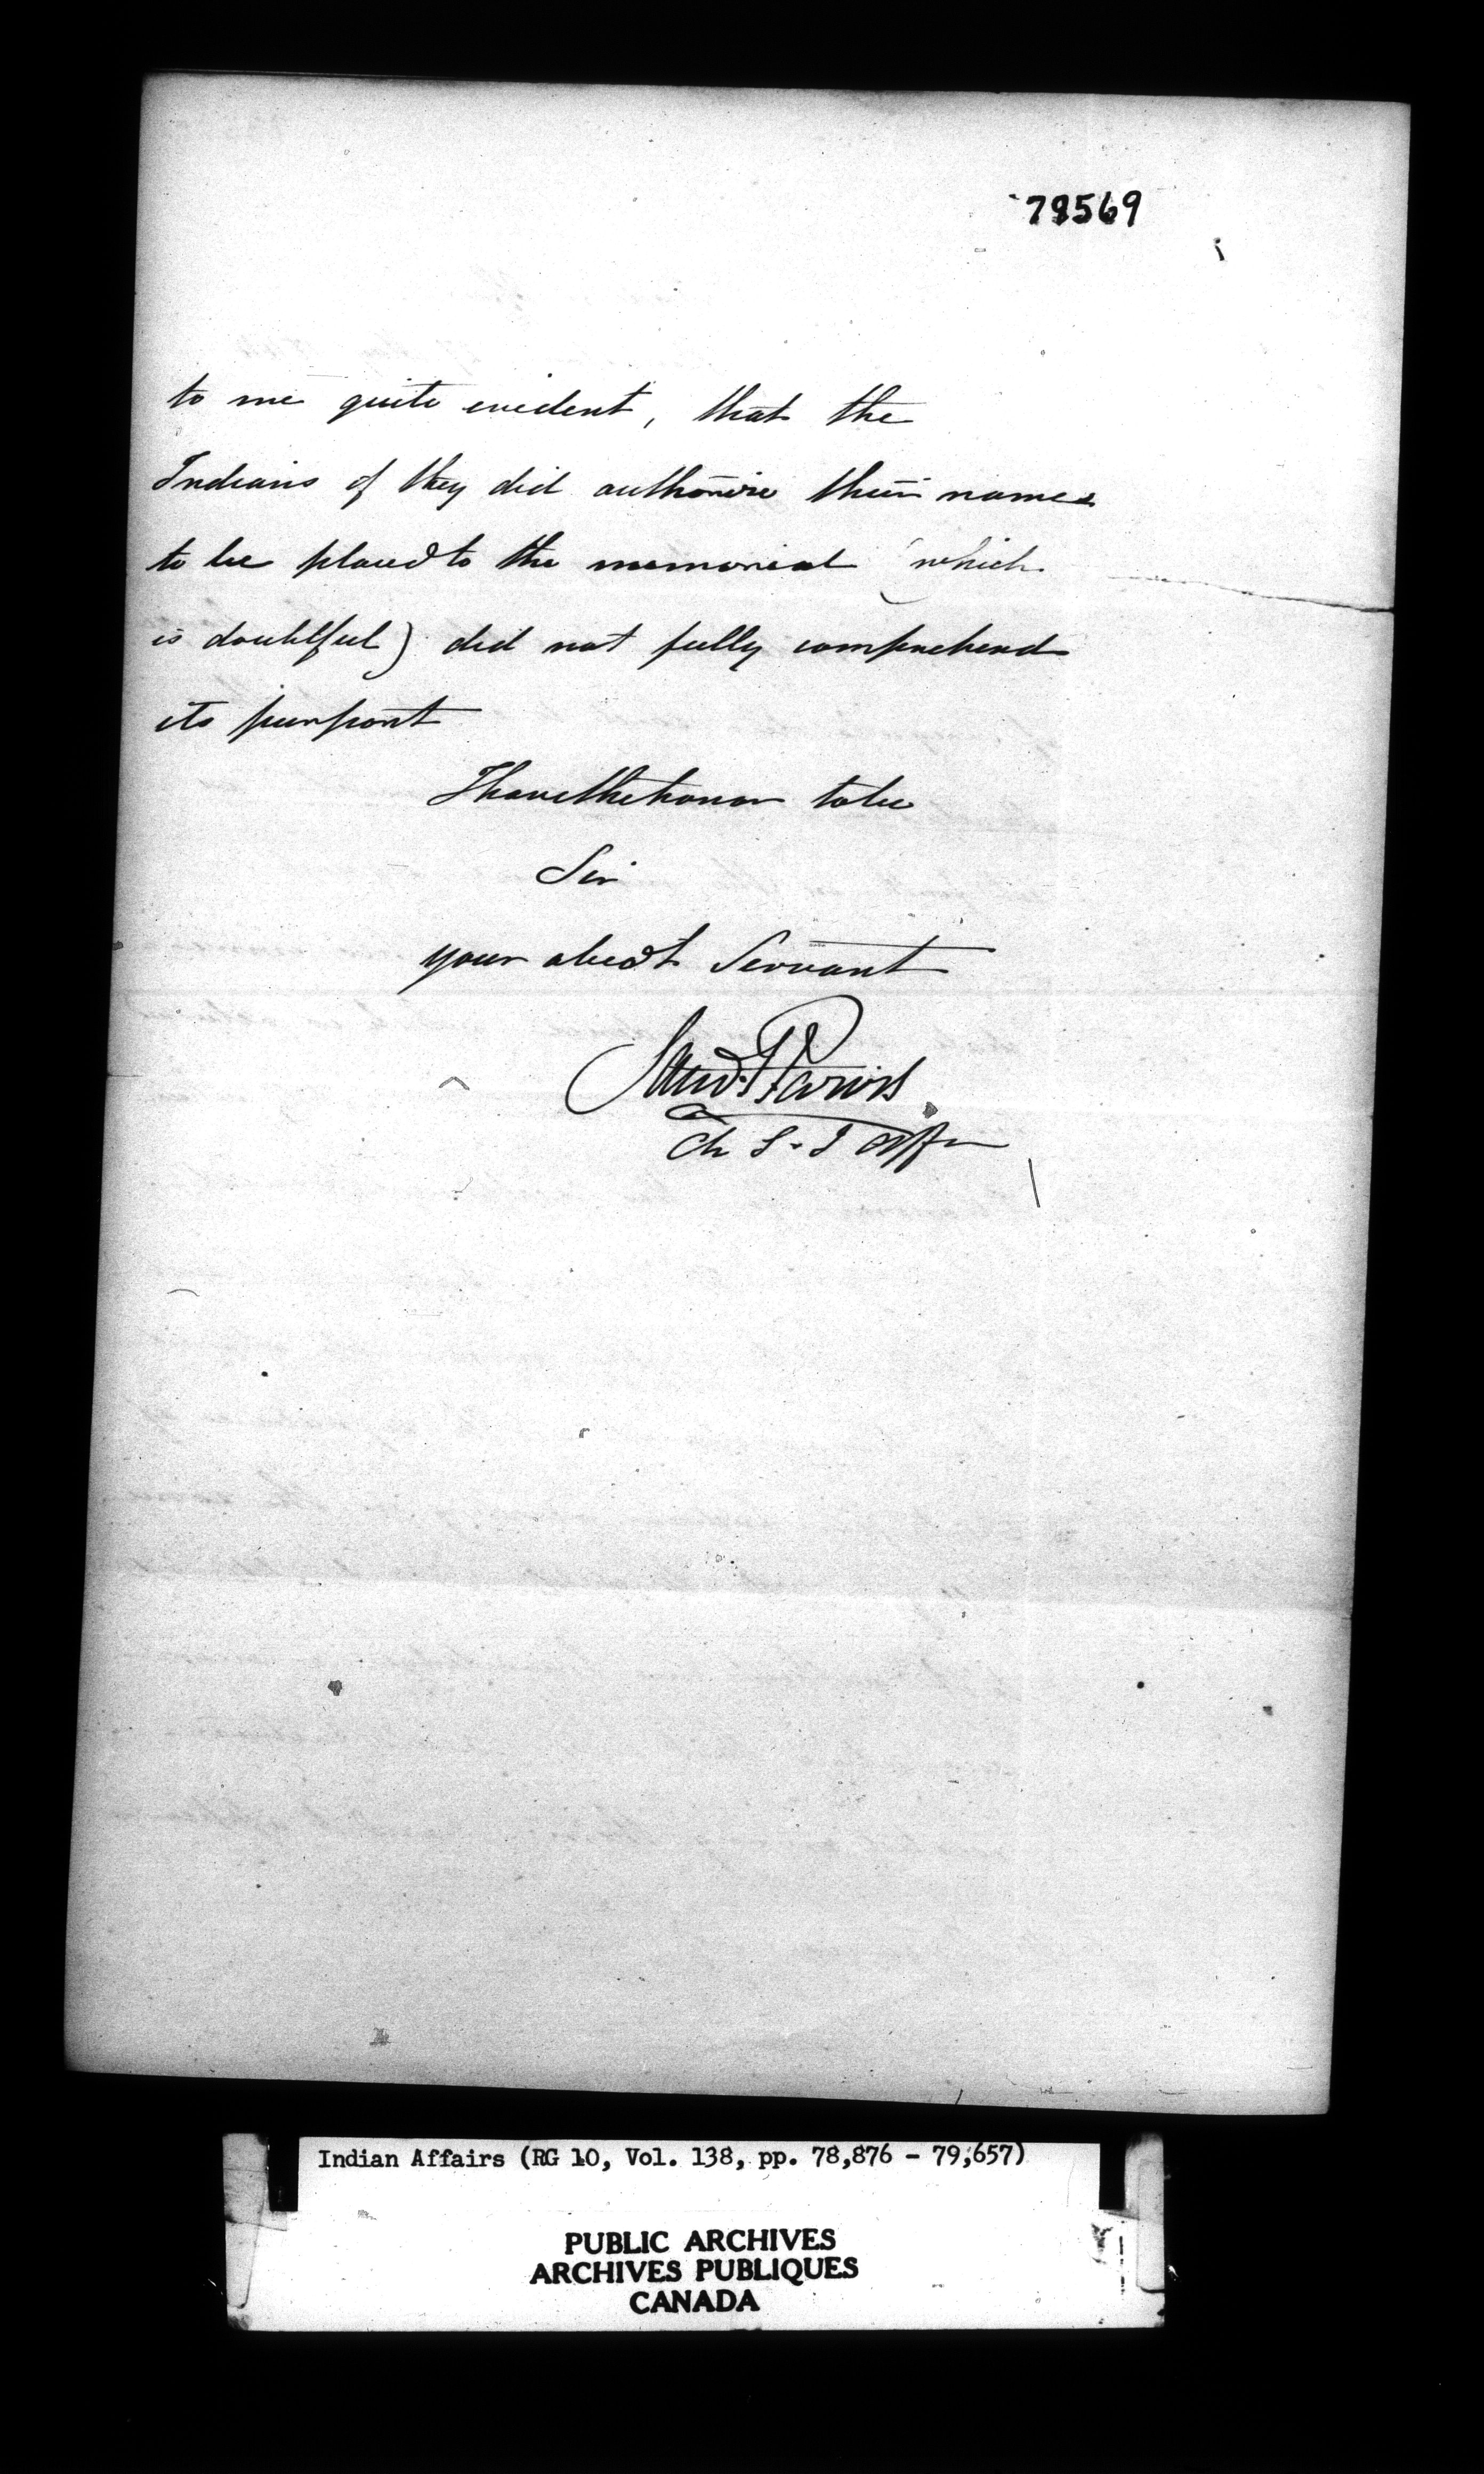 79569
to me quite evident, that the
Indians if they did authorise their names
to be placed to the memorial (which
is doubtful) did not fully comprehend
its purport
I have the honor to be
Sir
your obedt Servant
Saml P Jarvis
Ch S. I Affrs
Indian Affairs (RG 10, Vol. 138, pp. 78,876 - 79,657)
PUBLIC ARCHIVES
ARCHIVES PUBLIQUES
CANADA